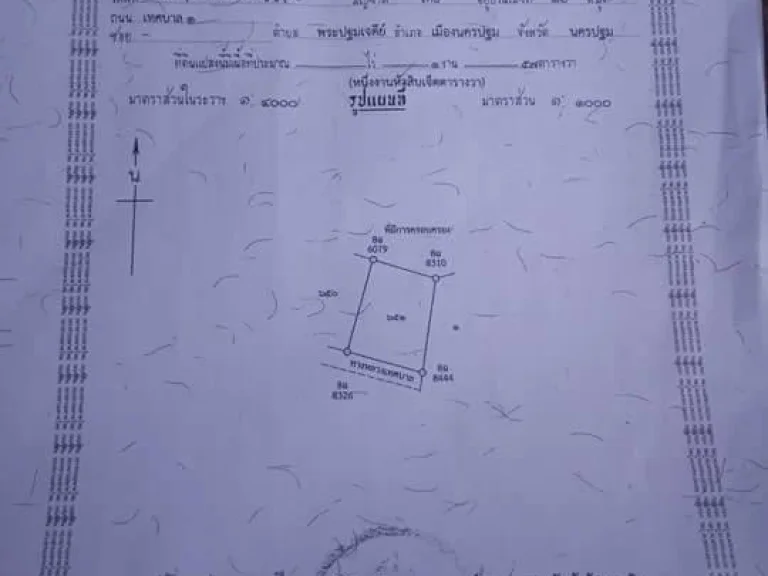 ถนน เทศบาล ๑
ซอย - ตำบล พระปฐมเจดีย์ อำเภอ เมืองนครปฐม จังหวัด นครปฐม
ที่ดินแปลงนี้มีเนื้อที่ประมาณ ไร่ ๑ งาน ๕๗ ตารางวา
(หนึ่งงานห้าสิบเจ็ดตารางวา)
มาตราส่วนในระวาง ๑: ๔๐๐๐ รูปแผนที่ มาตราส่วน ๑: ๑๐๐๐
น
ที่มีการครอบครอง
6079
8310
๖๕๐
๖๕๑
๑
ทางหลวงเทศบาล
8444
8326